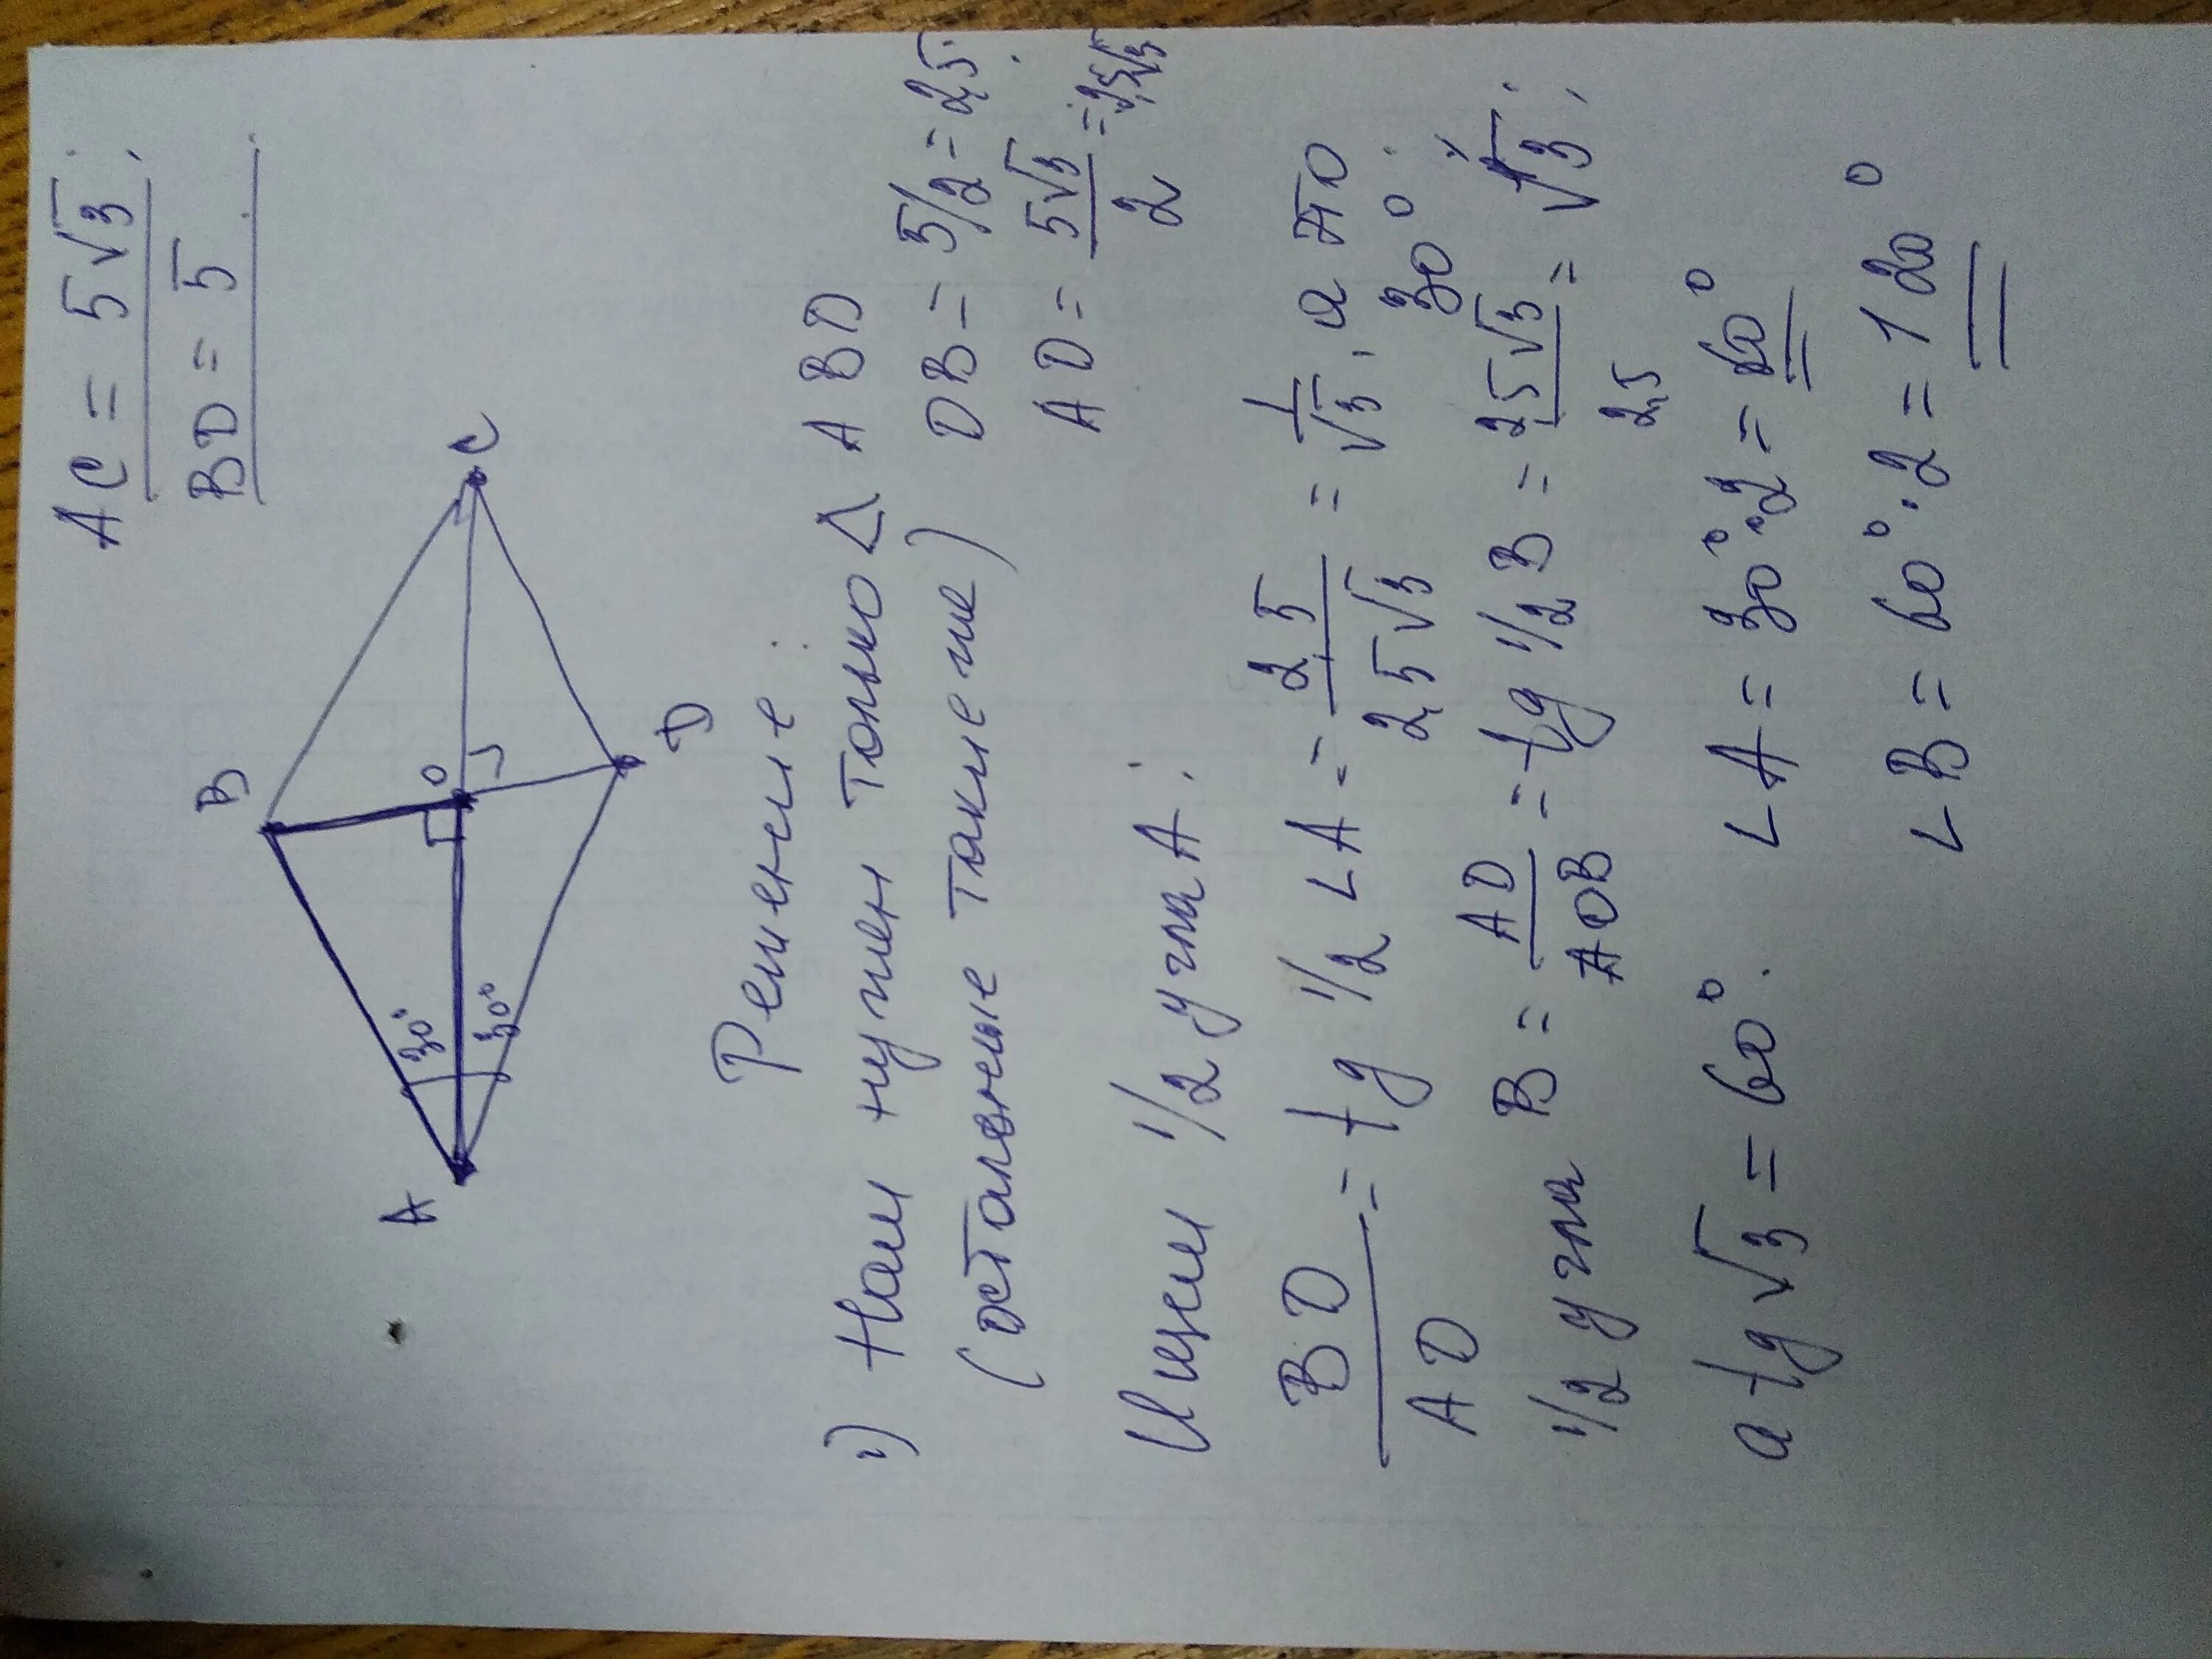 AC = 5√3;
BD = 5.
B
A
30°
30°
O
C
D
Решение:
1) Нам нужен только △ ABO
(остальные такие же)
OB = 5/2 = 2,5.
AO = 5√3/2 = 2,5√3
Ищем 1/2 угла A:
BO/AO = tg 1/2 ∠A = 2,5/2,5√3 = 1/√3, а это 30°.
1/2 угла B = AO/OB = tg 1/2 B = 2,5√3/2,5 = √3;
а tg √3 = 60°.
∠A = 30°·2 = 60°
∠B = 60°·2 = 120°